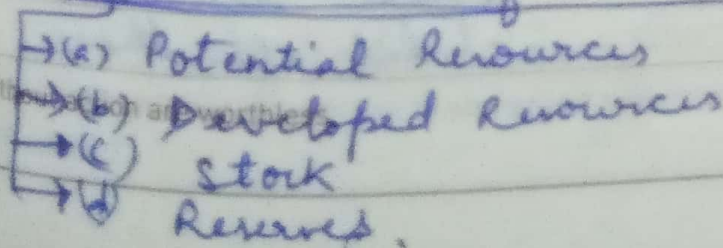 (a) Potential Resources
(b) Developed Resources
(c) Stock
(d) Reserves.